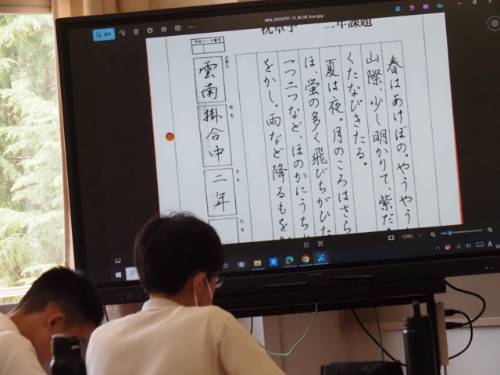 年課題
春はあけぼの。やうやう
山際、少し明かりて、紫だ
くたなびきたる。
夏は夜。月のころはさら
ほ、蛍の多く飛びちがひた
一つ二つなど、ほのかにうち
をかし。雨など降るもを
雲南
掛合中
二年